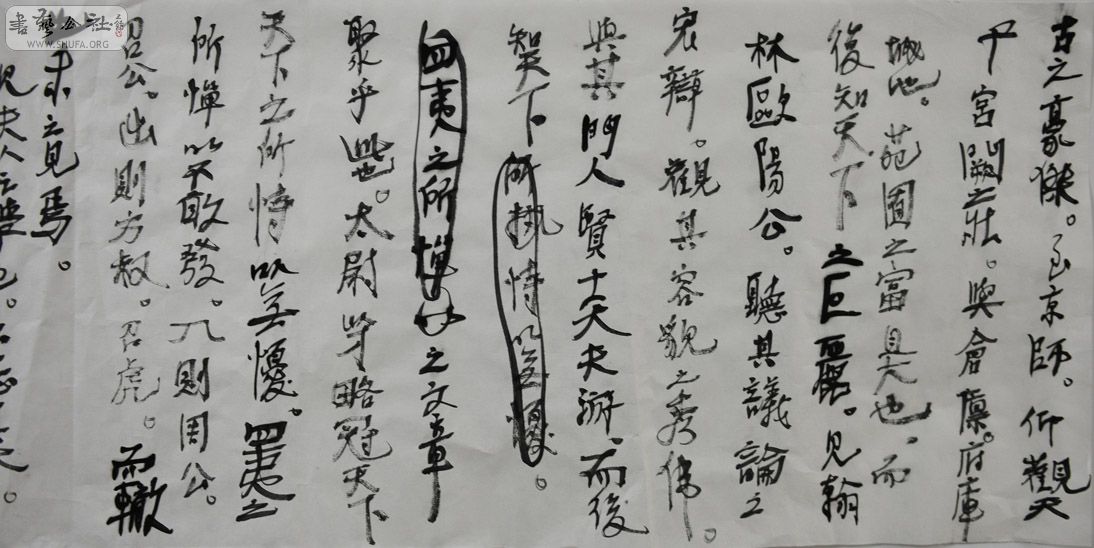 書藝公社
WWW.SHUFA.ORG
古之豪傑。至京師。仰觀天
子宮闕之壯。與倉廩。府庫
城池。苑囿之富且大也。而
後知天下之巨麗。見翰
林歐陽公。聽其議論之
宏辯。觀其容貌之秀偉。
與其門人賢士大夫游。而後
知天下所恃以無憂。
四夷之所憚以之文章
聚乎此也。太尉才略冠天下
天下之所恃以無憂。四夷之
所憚以不敢發。入則周公。
召公。出則方叔。召虎。而轍
也未之見焉。
見夫人之學也。不志其大。